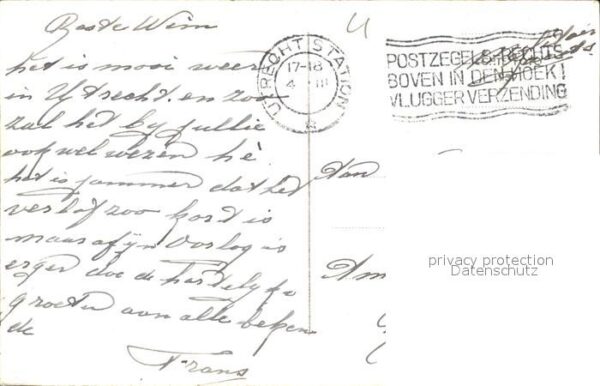 Beste Wim
het is mooi weer
in Utrecht. en zoo
zal het by jullie
ook wel wezen hè
het is jammer dat het
verlof zoo kort is
maar afyn Oorlog is
erger doe de hartelyke
groeten aan alle beken
de
Frans
UTRECHT STATION
17-18
4 III
POSTZEGELS RECHTS
BOVEN IN DEN HOEK!
VLUGGER VERZENDING
Aan
Am
privacy protection
Datenschutz